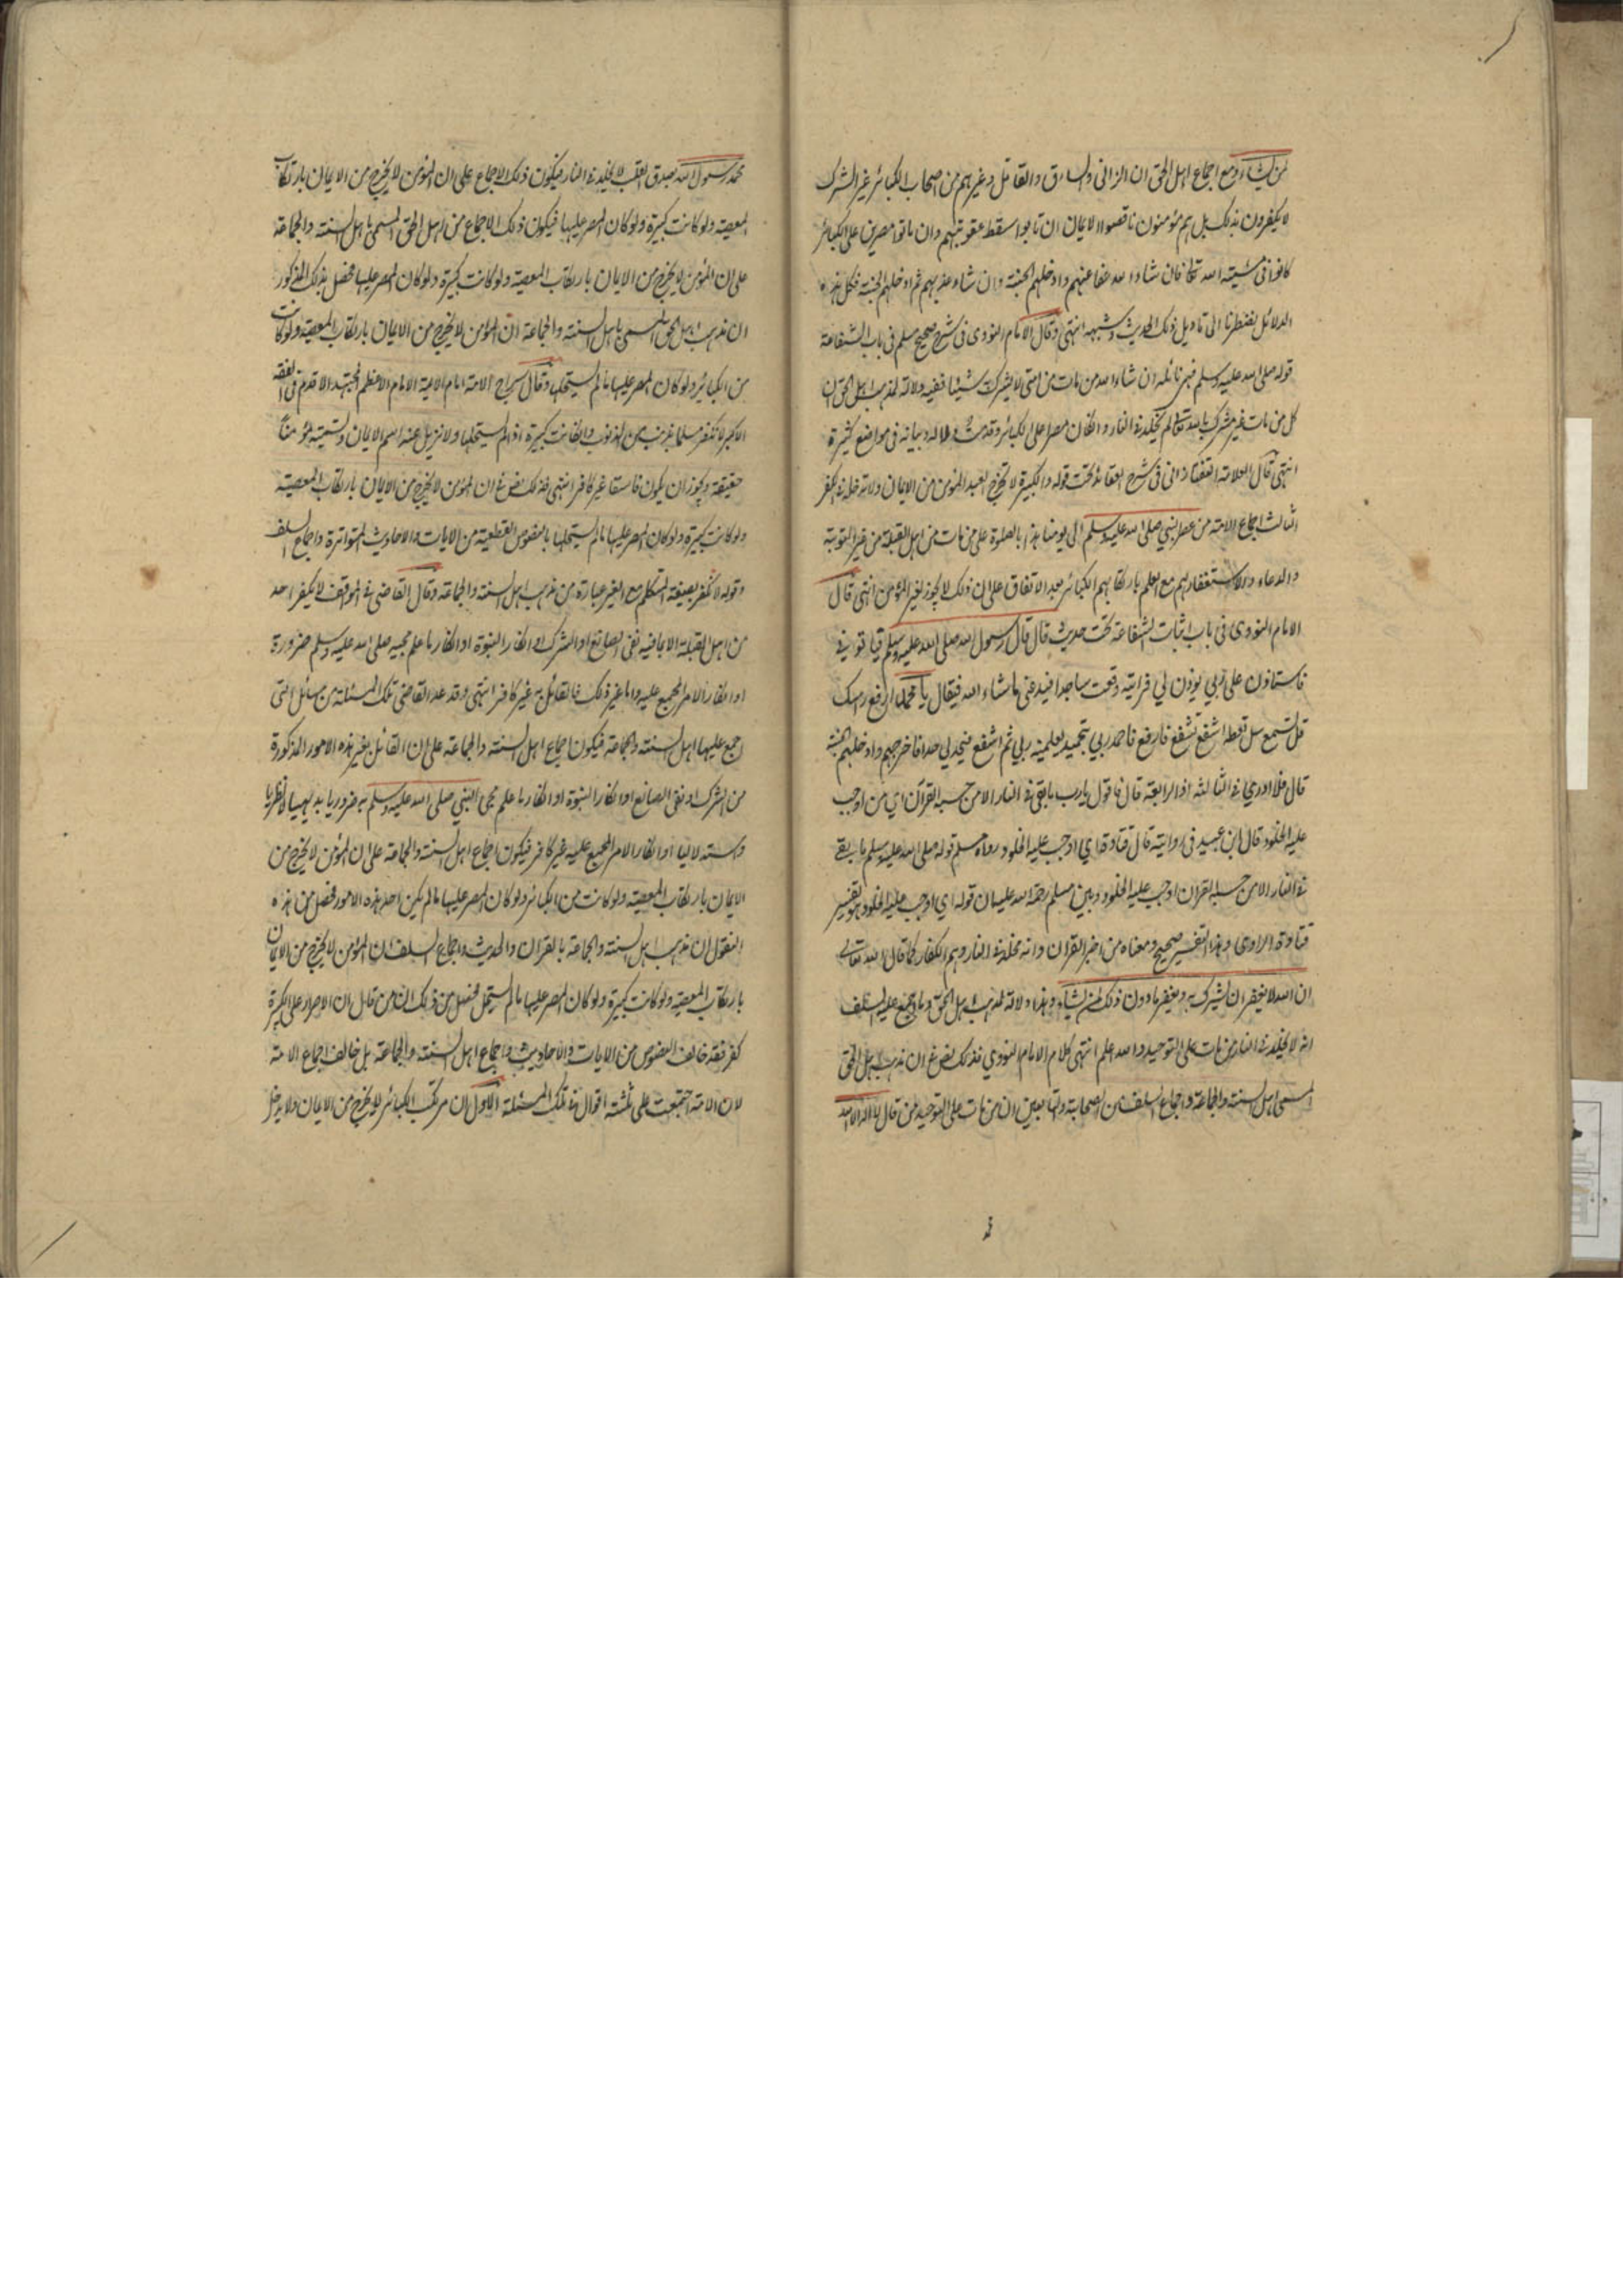 لمن يشاء ومع اجماع اهل الحق ان الزانى والسارق والقاتل وغيرهم من اصحاب الكبائر غير الشرك
لا يكفرون بذلك بل هم مؤمنون ناقصوا الايمان ان تابوا سقط عقوبتهم وان ماتوا مصرين على الكبائر
كانوا فى مشيته الله تعالى فان شاء الله عفا عنهم وادخلهم الجنة وان شاء عذبهم ثم ادخلهم الجنة فكل هذه
الدلائل يضطرنا الى تاويل ذلك الحديث وشبهه انتهى وقال الامام النووى فى شرح صحيح مسلم فى باب الشفاعة
قوله صلى الله عليه وسلم فهى نائلة ان شاء الله من مات من امتى لا يشرك شيئا ففيه دلالة لمذهب اهل الحق ان
كل من مات غير مشرك بالله تعالى لم يخلد فى النار وانكان مصرا على الكبائر وقد مت دلاله وبيانه فى مواضع كثيرة
انتهى قال العلامة التفتازانى فى شرح العقائد تحت قوله والكبيرة لا تخرج العبد المؤمن من الايمان ولا تدخله فى الكفر
الثالث اجماع الامة من عصر النبى صلى الله عليه وسلم الى يومنا هذا بالصلوة على من مات من اهل القبلة من غير التوبة
والدعاء والاستغفار لهم مع العلم بارتكابهم الكبائر بعد الاتفاق على ان ذلك لا يجوز لغير المؤمن انتهى قال
الامام النووى فى باب اثبات الشفاعة تحت حديث قال قال رسول الله صلى الله عليه وسلم فياتونى
فاستاذن على ربي فيؤذن لي فرايته وقعت ساجدا فيدعنى ما شاء الله فيقال يا محمد ارفع راسك
قل تسمع سل تعط اشفع تشفع فارفع فاحمد ربي بتحميد يعلمنيه ربي ثم اشفع فيحد لي حدا فاخرجهم وادخلهم الجنة
قال فلا ادري فى الثالثة او الرابعة قال فاقول يارب ما بقى فى النار الا من حبسه القرآن اي من اوجب
عليه الخلود قال ابن عبيد فى روايته قال قتادة اي اوجب عليه الخلود رواه مسلم قوله صلى الله عليه وسلم ما بقى
فى النار الا من حبسه القران اوجب عليه الخلود وبين مسلم رحمة الله عليه ان قوله اي اوجب عليه الخلود هو تفسير
قتادة الراوى وهذا التفسير صحيح ومعناه من اخبر القران وانه مخلد فى النار وهم الكفار كما قال الله تعالى
ان الله لا يغفر ان يشرك به ويغفر ما دون ذلك لمن يشاء وهذا دلالة لمذهب اهل الحق وما اجمع عليه السلف
انه لا يخلد فى النار من مات على التوحيد والله اعلم انتهى كلام الامام النووي فذلك نص فى ان مذهب اهل الحق
المسمى اهل السنة والجماعة واجماع السلف من الصحابة والتابعين ان من مات على التوحيد بان قال لا اله الا الله
محمد رسول الله بصدق القلب لا يخلد فى النار فيكون ذلك الاجماع على ان المؤمن لا يخرج من الايمان بارتكاب
المعصية ولو كانت كبيرة ولو كان المصر عليها فيكون ذلك الاجماع من اهل الحق المسمى باهل السنة والجماعة
على ان المؤمن لا يخرج من الايمان بارتكاب المعصية ولو كانت كبيرة ولو كان المصر عليها فحصل بذلك المذكور
ان مذهب اهل الحق المسمى باهل السنة والجماعة ان المؤمن لا يخرج من الايمان بارتكاب المعصية ولو كانت
من الكبائر ولو كان المصر عليها ما لم يستحلها وقال سراج الامة امام الايمة الامام الاعظم المجتهد الاقدم فى الفقه
الاكبر لا نكفر مسلما بذنب من الذنوب وانكانت كبيرة اذا لم يستحلها ولا نزيل عنه اسم الايمان ونسميه مؤمنا
حقيقة ويجوز ان يكون فاسقا غير كافر انتهى فذلك نص فى ان المؤمن لا يخرج من الايمان بارتكاب المعصية
ولو كانت كبيرة ولو كان المصر عليها ما لم يستحلها بالنصوص القطعية من الايات والاحاديث المتواترة واجماع السلف
وقوله لا نكفر بصيغة المتكلم مع الغير عبارة من مذهب اهل السنة والجماعة وقال القاضى فى المواقف لا يكفر احد
من اهل القبلة الا بما فيه نفى الصانع او الشرك او انكار النبوة او انكار ما علم مجيئه صلى الله عليه وسلم ضرورة
او انكار الامر المجمع عليه واما غير ذلك فالقائل به غير كافر انتهى وقد عد القاضى تلك المسئلة من مسائل التى
اجمع عليها اهل السنة والجماعة فيكون اجماع اهل السنة والجماعة على ان القائل بغير هذه الامور المذكورة
من الشرك او نفى الصانع او انكار النبوة او انكار ما علم مجئ النبي صلى الله عليه وسلم به ضروريا بديهيا لا نظريا
واستدلاليا او انكار الامر المجمع عليه غير كافر فيكون اجماع اهل السنة والجماعة على ان المؤمن لا يخرج من
الايمان بارتكاب المعصية ولو كانت من الكبائر ولو كان المصر عليها ما لم يكن احد هذه الامور فحصل من هذه
النقول ان مذهب اهل السنة والجماعة بالقران والحديث واجماع السلف ان المؤمن لا يخرج من الايمان
بارتكاب المعصية ولو كانت كبيرة ولو كان المصر عليها ما لم يستحل فحصل من ذلك ان من قال ان الاصرار على الكبيرة
كفر فقد خالف النصوص من الايات والاحاديث واجماع اهل السنة والجماعة بل خالف اجماع الامة
لان الامة اجتمعت على ثلثة اقوال فى تلك المسئلة الاول ان مرتكب الكبائر لا يخرج من الايمان ولا يدخل